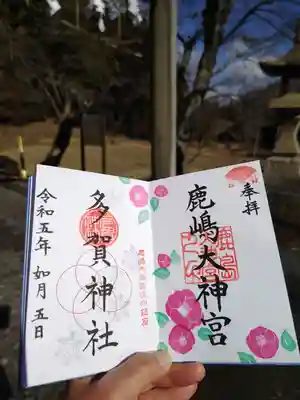 奉拝
鹿嶋大神宮
多賀神社
令和五年 如月 五日